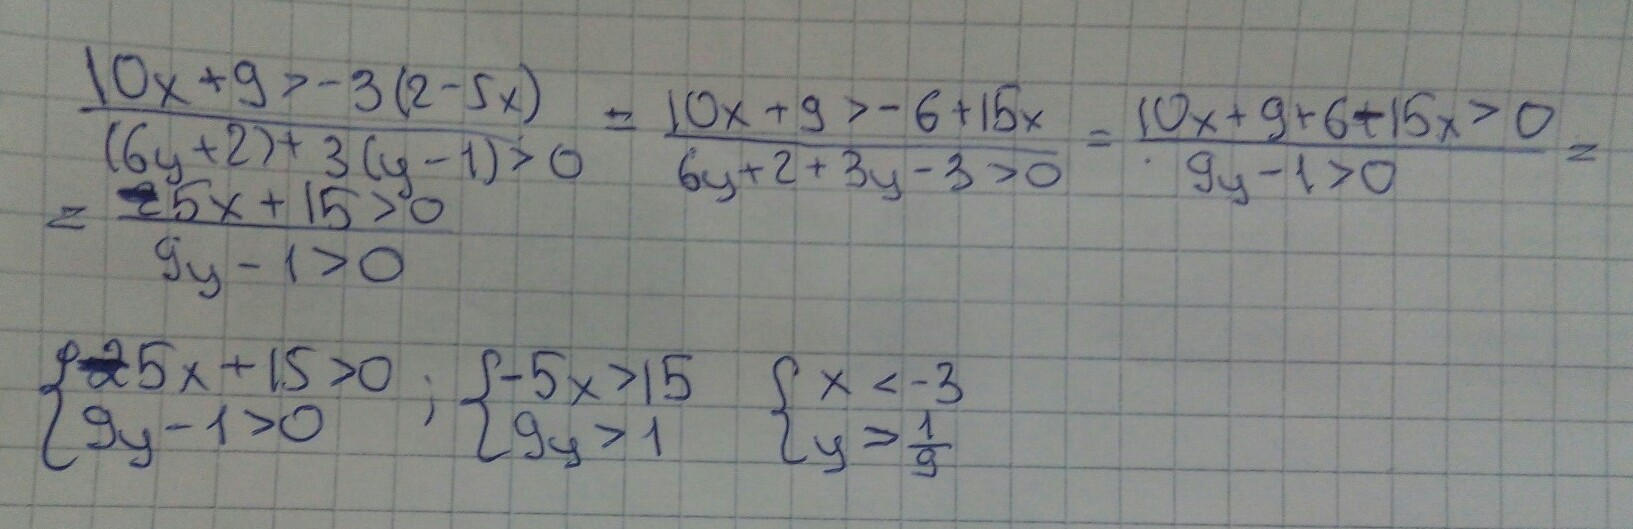 10x+9>-3(2-5x) / (6y+2)+3(y-1)>0 = 10x+9>-6+15x / 6y+2+3y-3>0 = 10x+9+6-15x>0 / 9y-1>0 =
= -5x+15>0 / 9y-1>0
{-5x+15>0 ; {-5x>15 {x<-3
{9y-1>0 {9y>1 {y>1/9